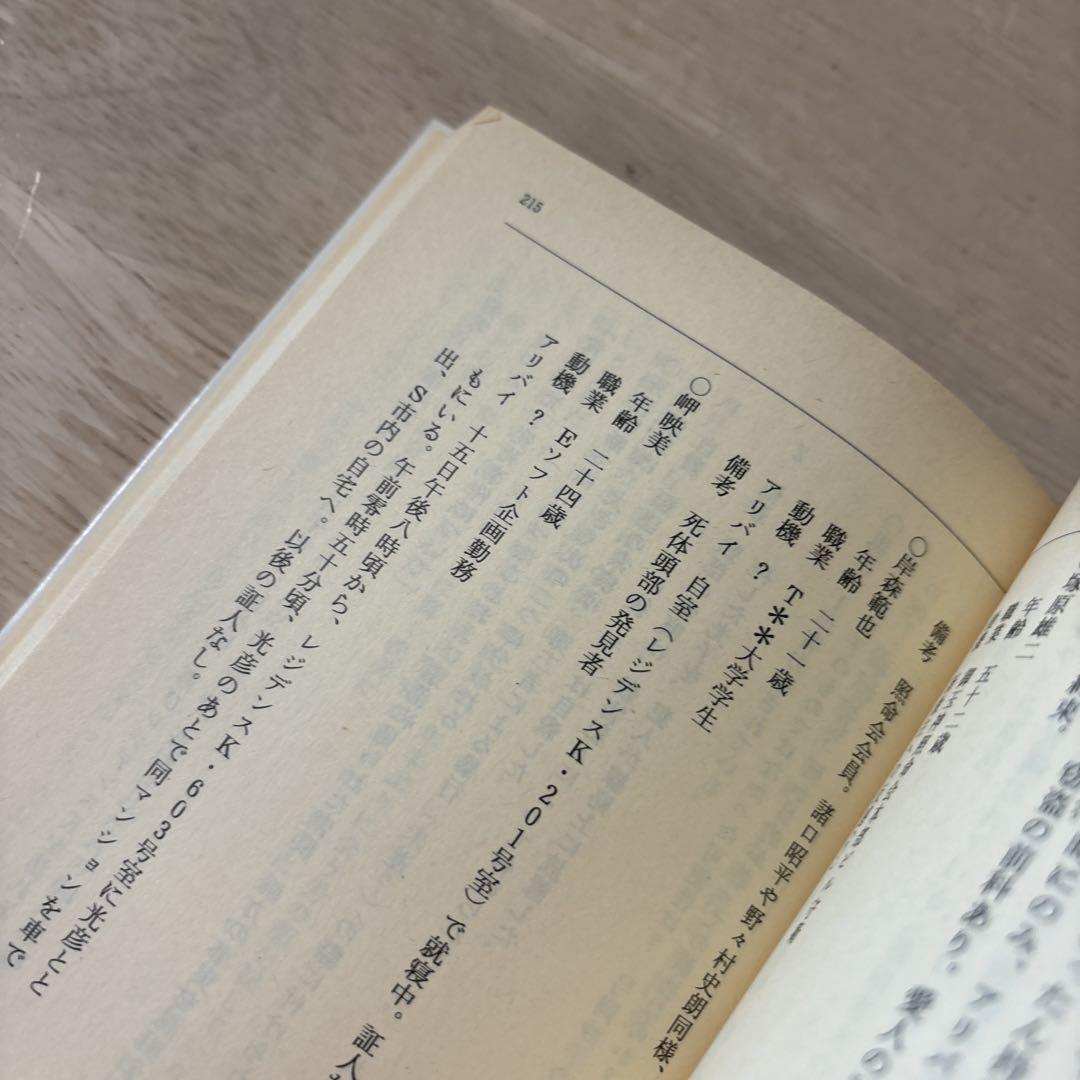 215
備考 照命会会員。諸口昭平や野々村史朗同様、
○岸森範也
年齢 二十一歳
職業 T＊＊大学学生
動機 ?
アリバイ 自室(レジデンスK・201号室)で就寝中。証人
備考 死体頭部の発見者
○岬映美
年齢 二十四歳
職業 Eソフト企画勤務
動機 ?
アリバイ 十五日午後八時頃から、レジデンスK・603号室に光彦とと
もにいる。午前零時五十分頃、光彦のあとで同マンションを車で
出、S市内の自宅へ。以後の証人なし。
塚原雄二
年齢 五十二歳
職業
前科あり。愛人の